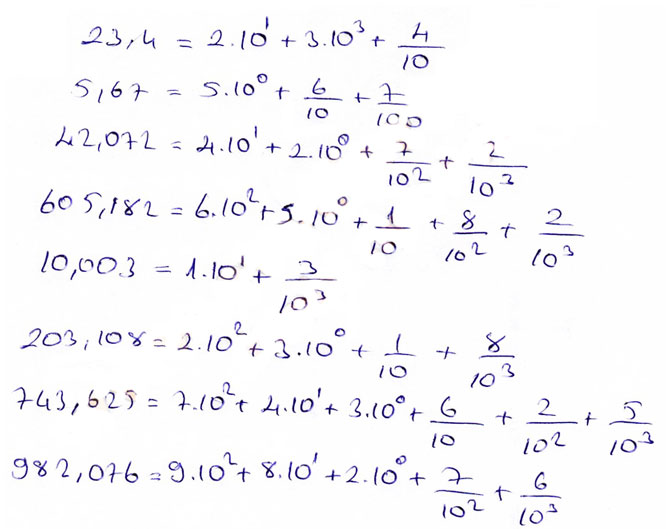 23,4 = 2.10¹ + 3.10³ + 4/10
5,67 = 5.10⁰ + 6/10 + 7/100
42,072 = 4.10¹ + 2.10⁰ + 7/10² + 2/10³
605,182 = 6.10² + 5.10⁰ + 1/10 + 8/10² + 2/10³
10,003 = 1.10¹ + 3/10³
203,108 = 2.10² + 3.10⁰ + 1/10 + 8/10³
743,625 = 7.10² + 4.10¹ + 3.10⁰ + 6/10 + 2/10² + 5/10³
982,076 = 9.10² + 8.10¹ + 2.10⁰ + 7/10² + 6/10³